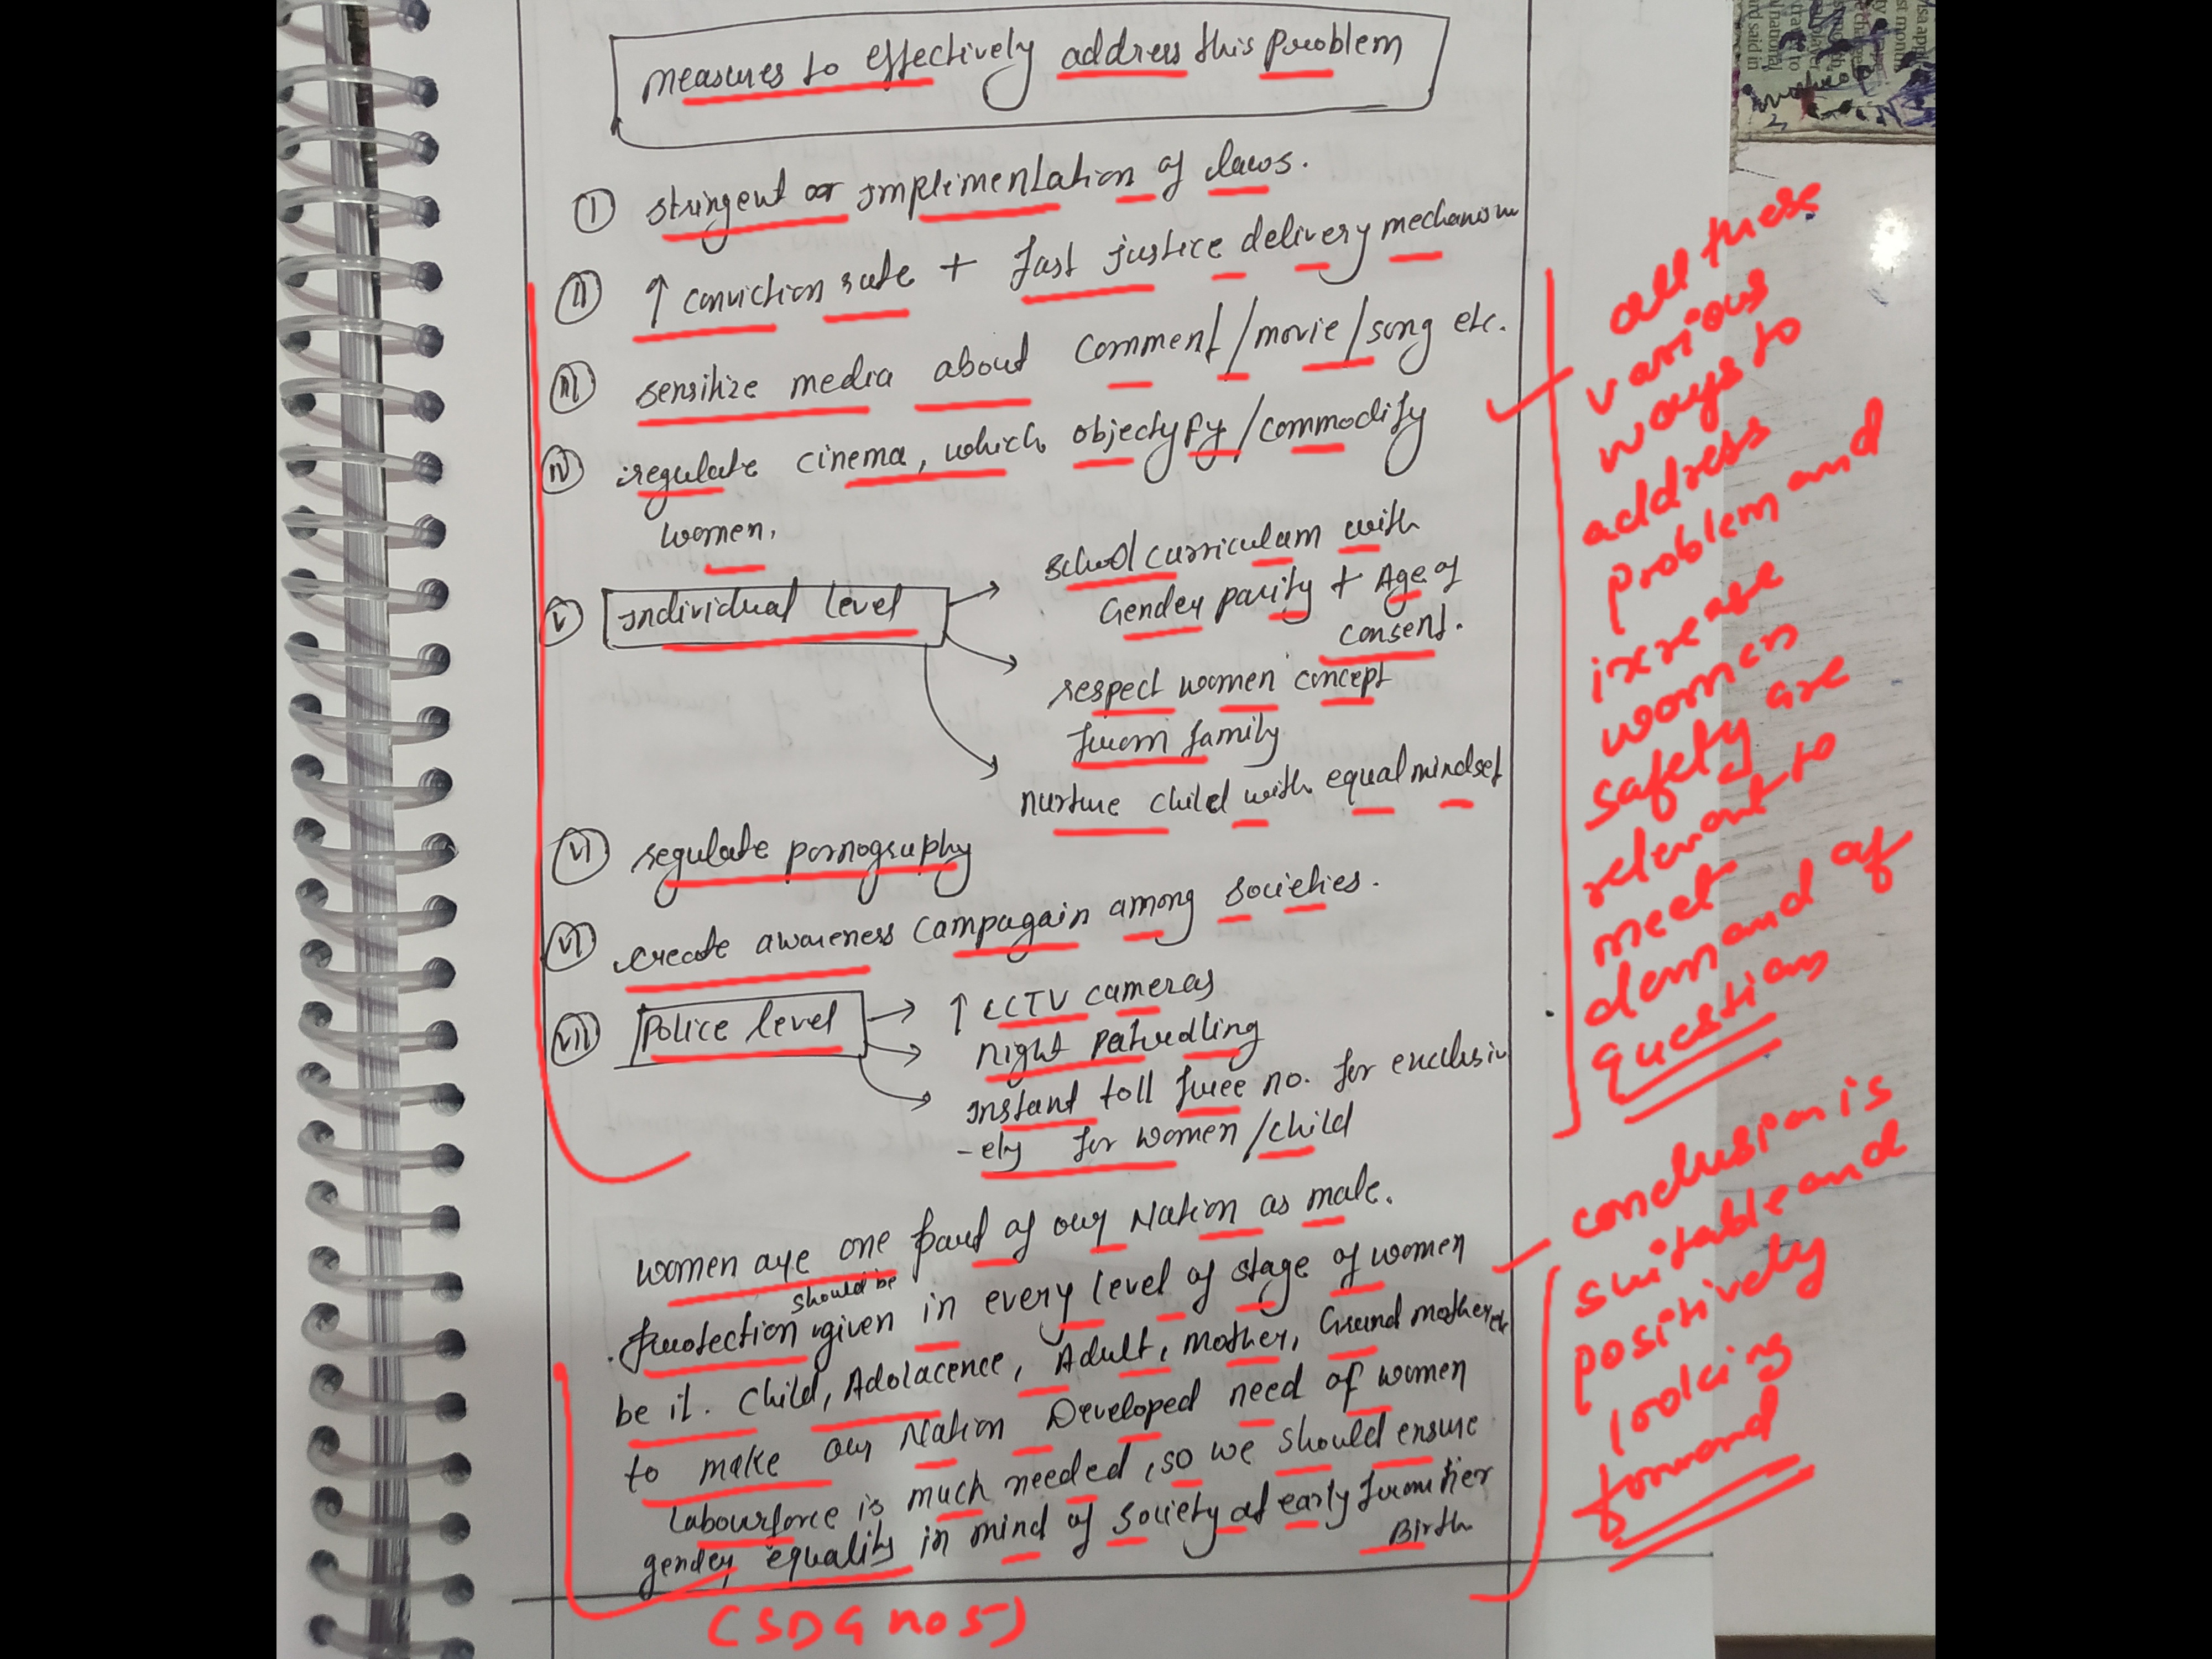 measures to effectively address this problem
I stringent or implimentation of laws.
II ↑ conviction rate + fast justice delivery mechanism
III sensitize media about comment/movie/song etc.
IV regulate cinema, which objectyfy/commodify
women.
V Individual level
school curriculam with
Gender parity + Age of
consent.
respect women concept
from family
nurture child with equal mindset
VI regulate pornography
VI create awareness campagain among societies.
VII Police level
↑ CCTV cameras
night patrolling
instant toll free no. for exclusiv
-ely for women/child
women are one part of our Nation as male.
should be
Protection given in every level of stage of women
be it. Child, Adolacence, Adult, Mother, Grand mother etc
to make our Nation Developed need of women
labourforce is much needed, so we should ensure
gender equality in mind of society at early from tier
Birth
all these
various
ways to
address
problem and
increase
women
safety are
relevant to
meet
demand of
question
conclusion is
suitable and
positively
looking
forward
(SDG no 5)